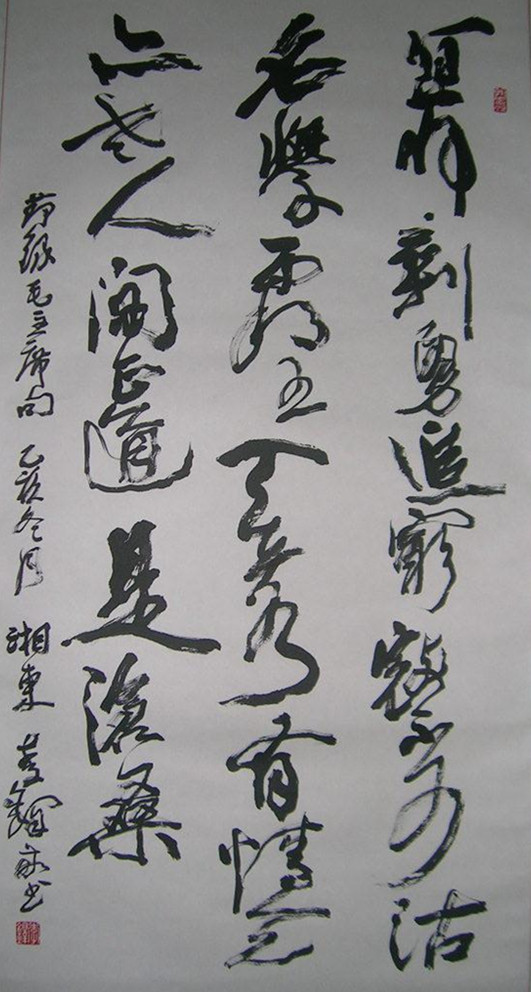 宜將剩勇追窮寇不可沽
名學霸王天若有情天
亦老人間正道是滄桑
節錄毛主席句 乙亥冬月 湘東 書